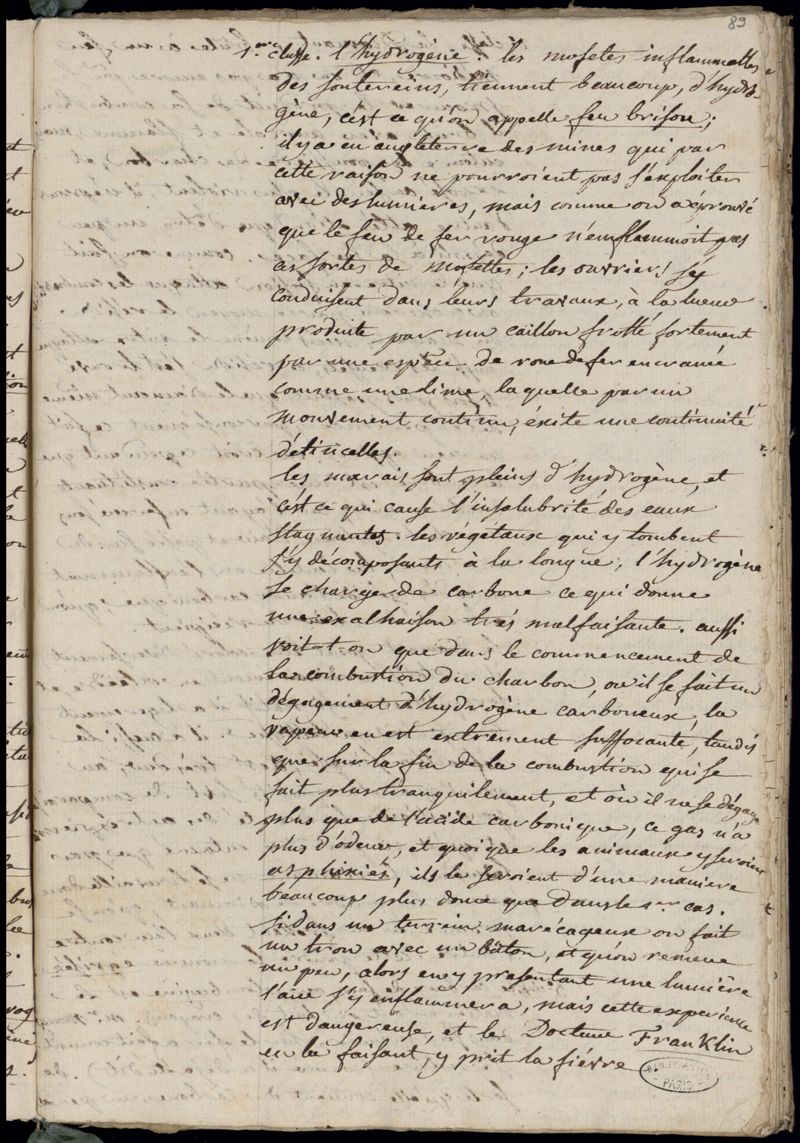 89
1.ere classe. l'hydrogène. les mofetes inflammelles
des souterreins, tiennent beaucoup, d'hydro-
gène, c'est ce qu'on appelle feu brisou;
il y a en angleterre des mines qui par
cette raison ne pourroient pas s'exploiter
avec des lumières, mais comme on a éprouvé
que le feu de fer rouge n'enflammoit pas
ces sortes de mofettes; les ouvriers se
conduisent dans leurs travaux, à la lueur
produite par un caillou frotté fortement
par une espèce de roue de fer encranée
comme une lime, laquelle par un
mouvement continu, éxite une continuité
d'étincelles.
les marais sont pleins d'hydrogène, et
c'est ce qui cause l'insalubrité des eaux
stagnantes. les végétaux qui y tombent
s'y décomposants à la longue, l'hydrogène
se charge de carbone ce qui donne
une exalhaison trés malfaisante. aussi
voit-on que dans le commencement de
la combustion du charbon, ou il se fait un
dégagement d'hydrogène carboneux, la
vapeur en est extrement suffocante, tandis
que sur la fin de la combustion qui se
fait plus tranquilement, et où il ne se dégage
plus que de l'acide carbonique, ce gas n'a
plus d'odeur, et quoique les animaux y seroient
asphixiés, ils le seroient d'une maniere
beaucoup plus douce que dans le 1.er cas.
si dans un terrein marécageux on fait
un trou avec un bâton, et qu'on remue
un peu, alors en y présentant une lumière
l'air s'y enflammera, mais cette experience
est dangereuse, et le Docteur Franklin
en la faisant, y prit la fièvre
PARIS